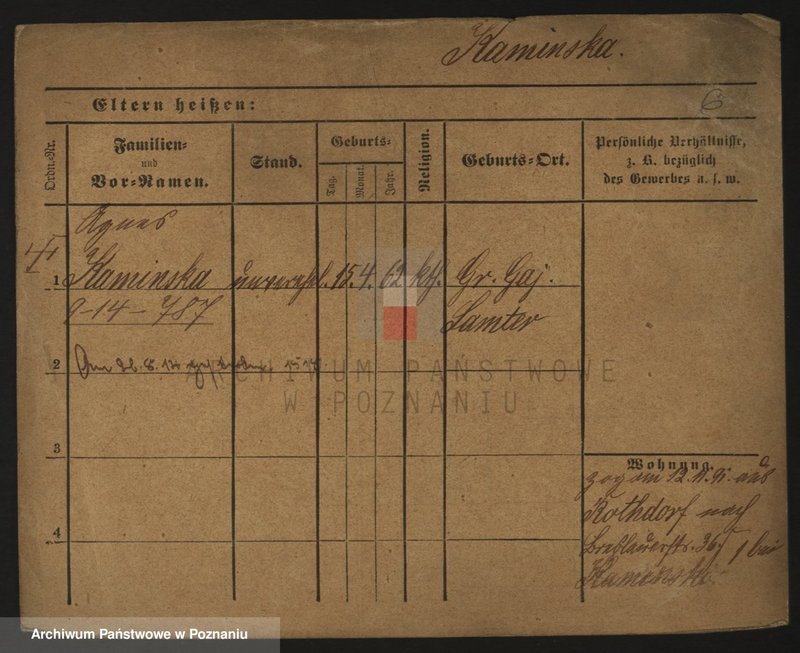 Kaminska.
6
Eltern heißen:
Ordn.-Nr.
Familien-
und
Vor-Namen.
Stand.
Geburts-
Tag.
Monat.
Jahr.
Religion.
Geburts-Ort.
Persönliche Verhältnisse,
z. B. bezüglich
des Gewerbes u. s. w.
Agnes
1 Kaminska unverehl. 15. 4. 62 kth. Gr. Gaj.
9-14-787 Samter
2 Am 26. 8. 14
ARCHIWUM PAŃSTWOWE
W POZNANIU
3
Wohnung.
zog am 12. 11. 91. aus
Rothdorf nach
4 Breslauerstr. 36 bei
Kaminski.
Archiwum Państwowe w Poznaniu